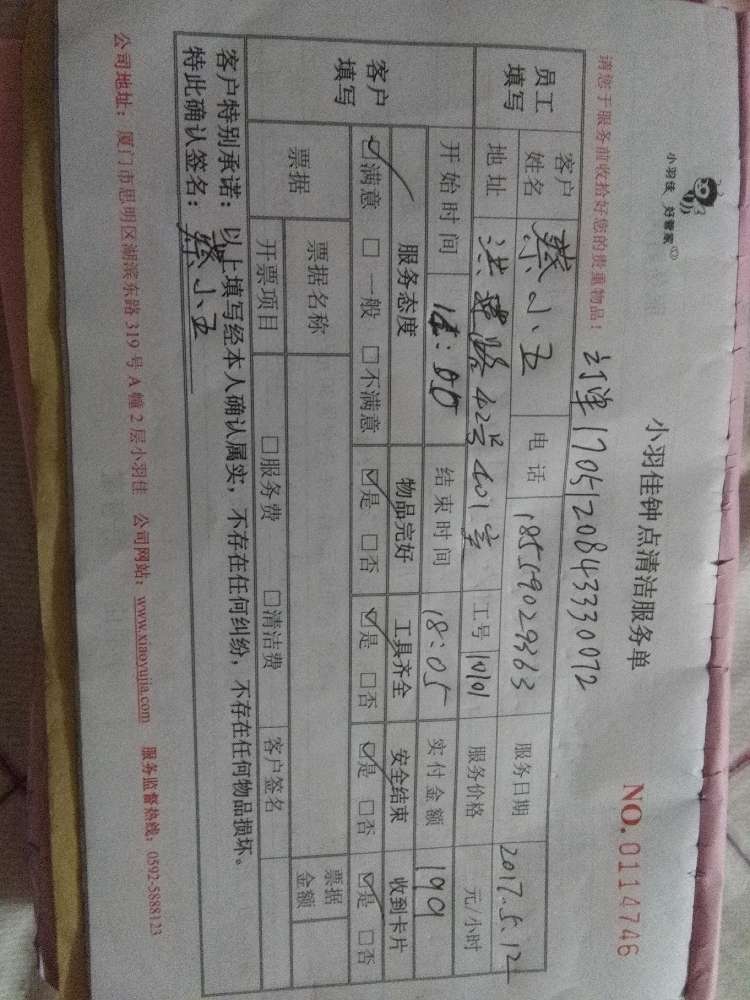 小羽佳 好管家
小羽佳钟点清洁服务单
NO.0114746
请您于服务前收拾好您的贵重物品! 订单1705120843330072
员工填写 客户姓名 蔡小五 电话 18559029363 服务日期 2017.5.12
地址 洪莲路42号401室 工号 10101 服务价格 元/小时
客户填写 开始时间 14:00 结束时间 18:05 实付金额 199
服务态度 物品完好 工具齐全 安全结束 收到卡片
☑满意 □一般 □不满意 ☑是 □否 ☑是 □否 ☑是 □否 ☑是 □否
票据 票据名称 票据金额
开票项目 □服务费 □清洁费 客户签名
客户特别承诺:以上填写经本人确认属实,不存在任何纠纷,不存在任何物品损坏。
特此确认签名:蔡小五
公司地址:厦门市思明区湖滨东路319号A幢2层小羽佳 公司网站:www.xiaoyujia.com 服务监督热线:0592-5888123